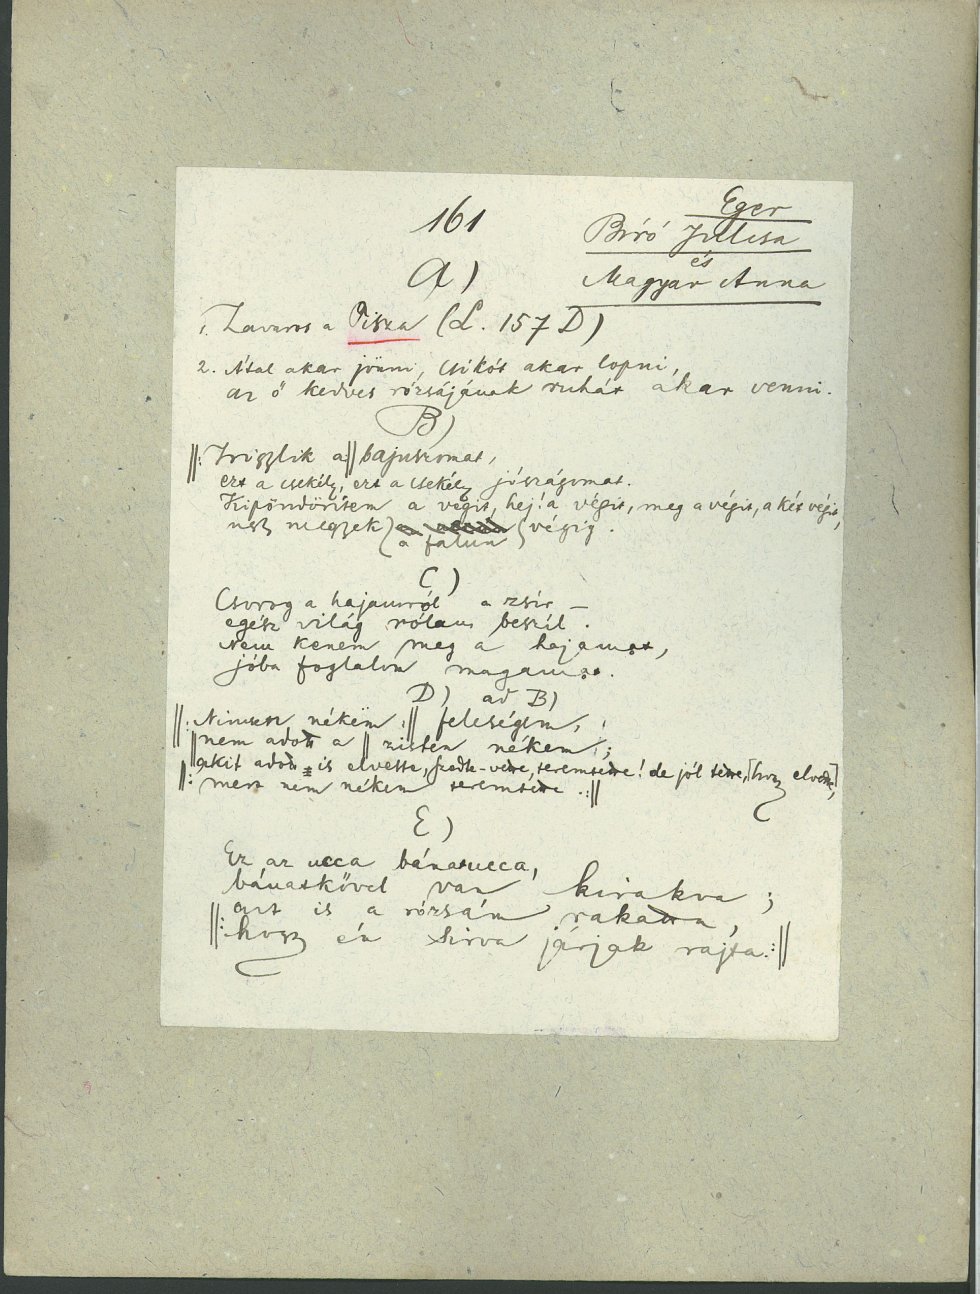 161
Eger
Bíró Julcsa
és
Magyar Anna
A)
1. Zavaros a Tisza (L. 157 D)
2. Átal akar jönni, csikót akar lopni,
az ő kedves rózsájának ruhát akar venni.
B)
||: Iriszlik a :|| bajuszomat,
ezt a csekély, ezt a csekély jószágomat.
Kipöndörítem a végit, hej! a végit, meg a végit, a két végit,
ugy megyek (a falun) végig.
C)
Csurog a hajamról a zsír –
egész világ rólam beszél.
Nem kenem meg a hajamat,
jóba foglalom magamat.
D) ad B)
||: Nincsen nékëm :|| feleségem,
nem adott a zisten nékem;
akit adott is elvette, teremtette! de jól tette, [hogy elvette],
||: mert nem nékem teremtette :||
E)
Ez az ucca bánatucca,
bánatkővel van kirakva;
||: azt is a rózsám rakatta,
hogy én sírva járjak rajta. :||